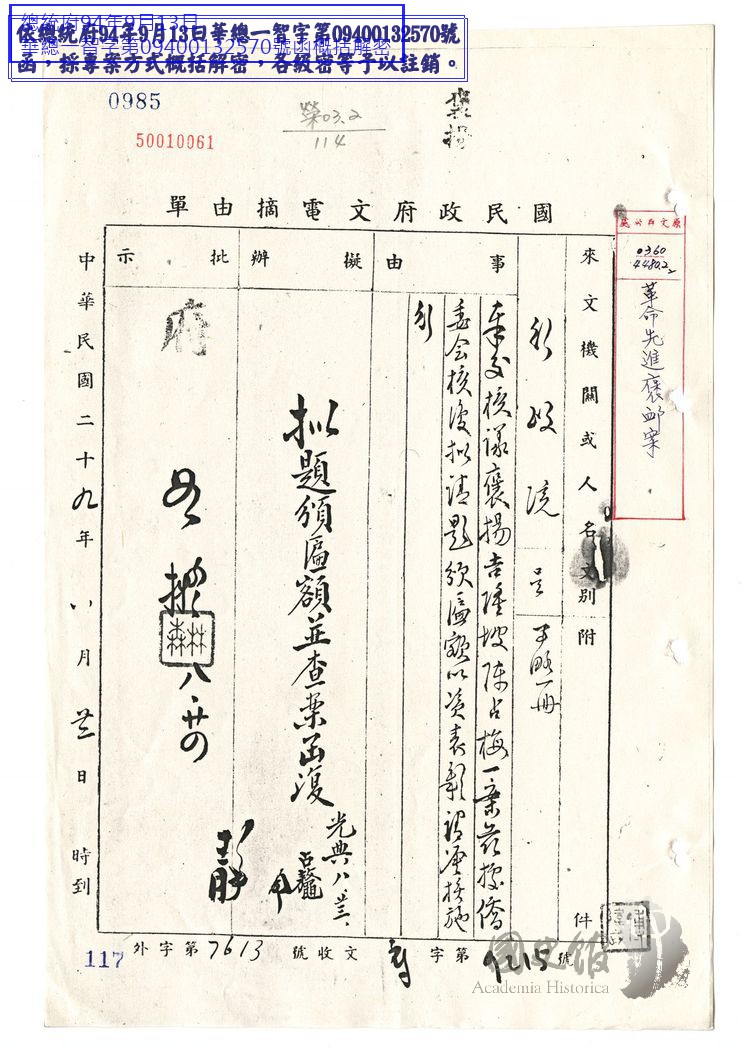 總統府94年9月13日
華總一智字第09400132570號函概括解密
依總統府94年9月13日華總一智字第09400132570號
函，採專案方式概括解密，各級密等予以註銷。
0985
50010061
榮03.2
114
國民政府文電摘由單
0360
44802
革命先進褒卹案
來文機關或人名
文別
附
件
行政院
呈
事略一冊
事由
奉交核議褒揚吉隆坡陳占梅一案茲據僑
委会核復拟請題頒匾額以資表彰
擬辦
拟題頒匾額並查案函復
光典八、廿三、
批示
府
如拟
林森
八、廿四
中華民國二十九年八月廿三日 時到
外字第7613號收文
字第9215號
117
國史館
Academia Historica